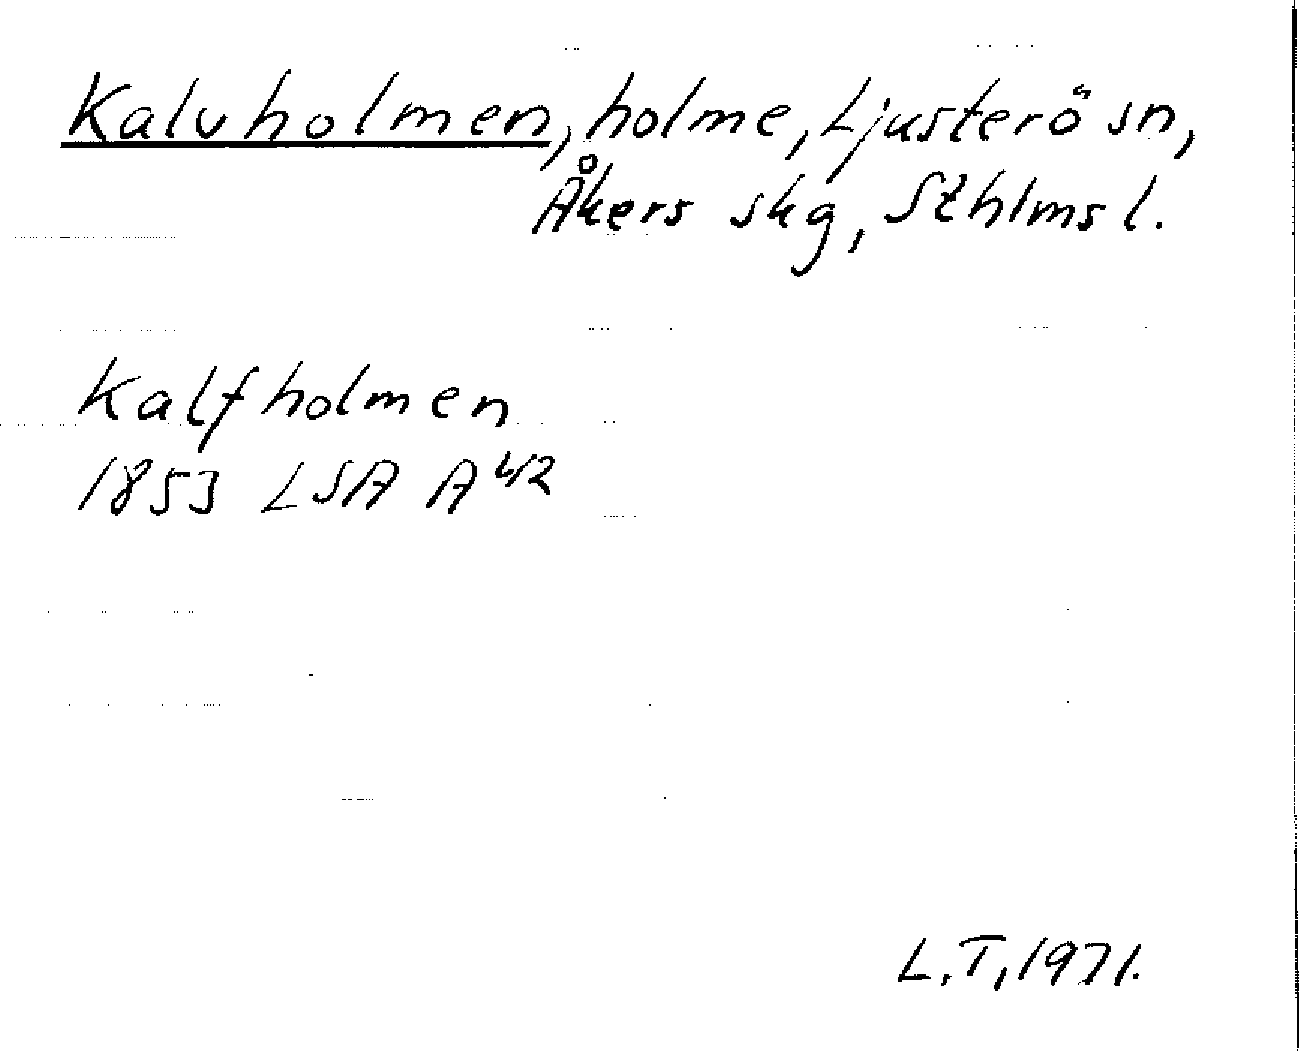 Kalvholmen, holme, Ljusterö sn,
Åkers skg, Sthlms l.
Kalfholmen
1853 LSA A 42
L.T, 1971.